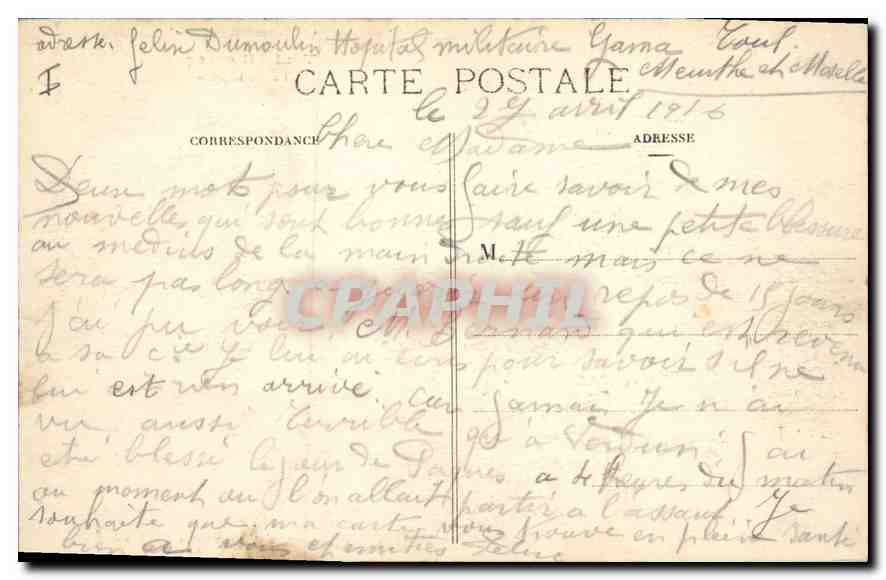 adresse. Felix Dumoulin Hopital militaire Gama Toul
I Meurthe et Moselle
CARTE POSTALE
le 27 avril 1916
CORRESPONDANCE ADRESSE
Chere Madame
Deux mots pour vous faire savoir de mes
nouvelles qui sont bonnes sauf une petite blessure
au medius de la main droite mais ce ne
M.
sera pas long repos de 15 jours
CPAPHIL
J'ai pu voir M. Bernard qui est revenu
a sa Cie Je lui ai ecris pour savoir s'il ne
lui est rien arrivé car jamais Je n'ai
vu aussi terrible qu'à Verdun J'ai
eté blessé le jour de Paques a de heures du matin
au moment ou l'on allait partir a l'assaut Je
souhaite que ma carte vous trouve en pleine santé
bien a vous et amitiés Felix